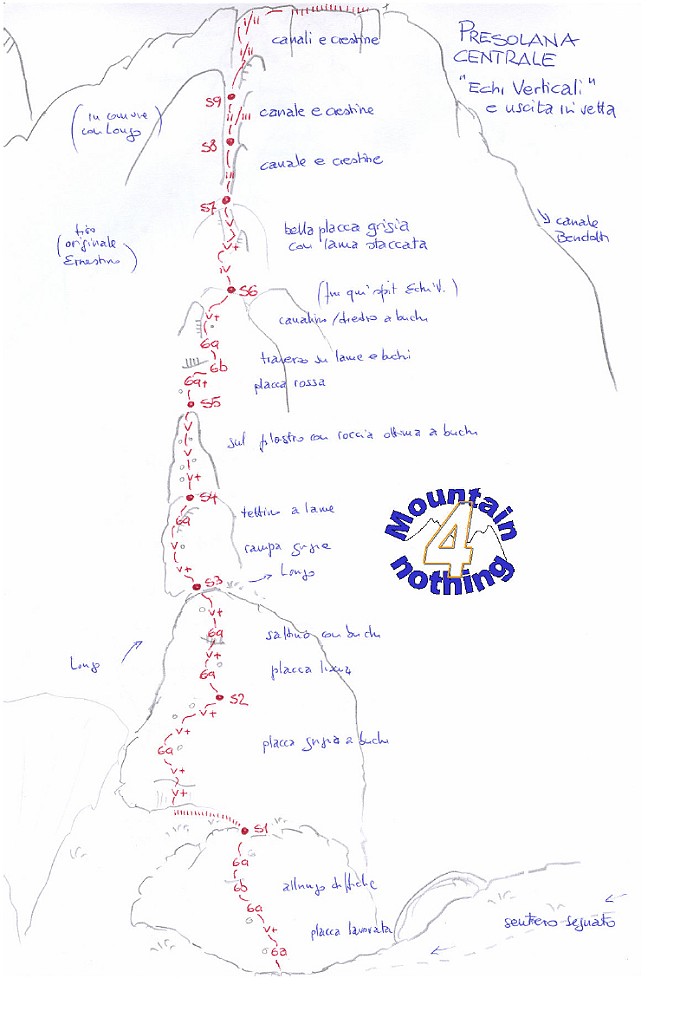 PRESOLANA
CENTRALE
"Echi Verticali"
e uscita in vetta
canali e crestine
II
I/II
S9
(in comune
con Longo)
II/III
canale e crestine
S8
canale e crestine
III
S7
V
bella placca grigia
con lama staccata
V+
tiro
(originale
Ernestino)
canale
Bendotti
IV
S6
(fin qui spit Echi V.)
V+
canalino/diedro a buchi
6a
traverso su lame e buchi
6b
6a+
placca rossa
S5
V
sul pilastro con roccia ottima a buchi
V
V+
S4
tettino a lame
6a
V
rampa grigia
V+
S3
→ Longo
V+
6a
saltino con buchi
V+
Longo
placca liscia
6a
S2
V+
placca grigia a buchi
6a
V+
V+
S1
6a
6b
allungo difficile
6a
V+
placca lavorata
6a
sentiero segnato
Mountain
4
nothing